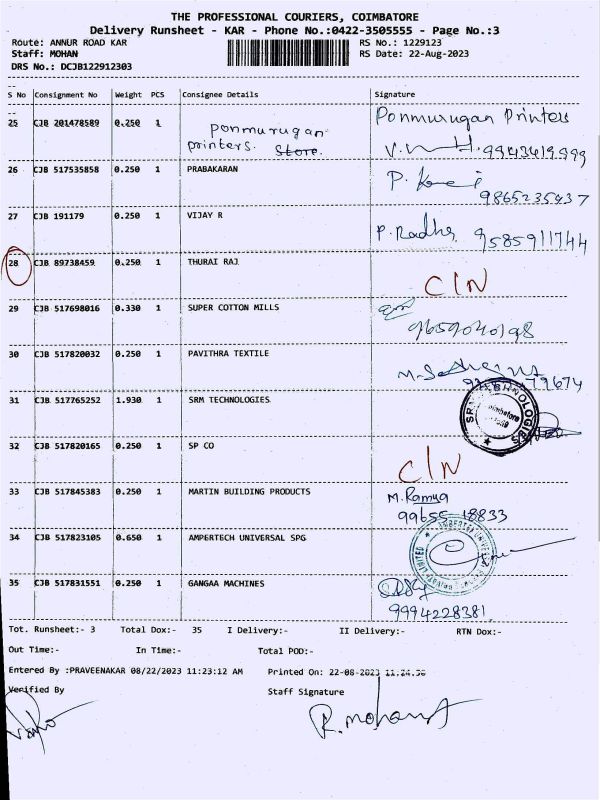 THE PROFESSIONAL COURIERS, COIMBATORE
Delivery Runsheet - KAR - Phone No.:0422-3505555 - Page No.:3
Route: ANNUR ROAD KAR RS No.: 1229123
Staff: MOHAN RS Date: 22-Aug-2023
DRS No.: DCJB122912303
S No Consignment No Weight PCS Consignee Details Signature
25 CJB 201478589 0.250 1 Ponmurugan Ponmurugan Printers
printers. Store. 9943419999
26 CJB 517535858 0.250 1 PRABAKARAN
9865235437
27 CJB 191179 0.250 1 VIJAY R P. Radha 9585911744
28 CJB 89738459 0.250 1 THURAI RAJ C/N
29 CJB 517698016 0.330 1 SUPER COTTON MILLS
9659040198
30 CJB 517820032 0.250 1 PAVITHRA TEXTILE
79674
31 CJB 517765252 1.930 1 SRM TECHNOLOGIES SRM TECHNOLOGIES
Coimbatore
32 CJB 517820165 0.250 1 SP CO C/N
33 CJB 517845383 0.250 1 MARTIN BUILDING PRODUCTS M. Ramya
99655 18833
34 CJB 517823105 0.650 1 AMPERTECH UNIVERSAL SPG
35 CJB 517831551 0.250 1 GANGAA MACHINES
9994228381
Tot. Runsheet:- 3 Total Dox:- 35 I Delivery:- II Delivery:- RTN Dox:-
Out Time:- In Time:- Total POD:-
Entered By :PRAVEENAKAR 08/22/2023 11:23:12 AM Printed On: 22-08-2023 11:24:56
Verified By Staff Signature
R. mohan